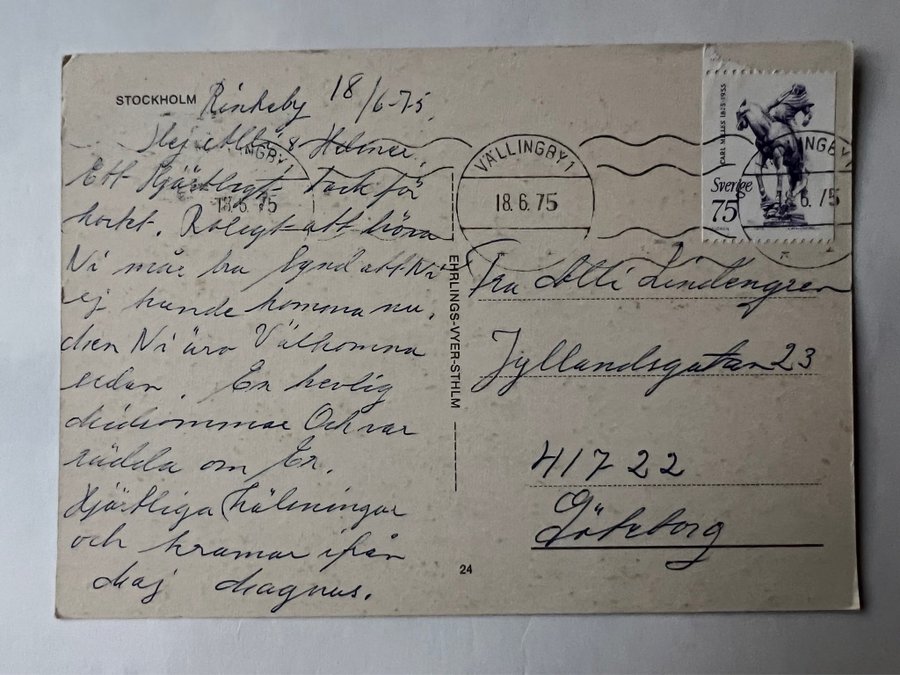 STOCKHOLM Rinkeby 18/6-75
Hej Atti & Helmer.
Ett Hjärtligt Tack för
kortet. Roligt att höra
Ni mår bra Synd att Ni
ej kunde komma nu,
men Ni äro Välkomna
sedan. En hevlig
Midsommar Och var
rädda om Er.
Hjärtliga Hälsningar
och kramar ifrån
Maj Magnus.
EHRLINGS-VYER-STHLM
24
VÄLLINGBY 1
18.6.75
NGBY 1
18.6.75
NGBY 1
8.6.75
CARL MILLES 1875-1955
Sverige
75
Fru Atti Lindengren
Jyllandsgatan 23
417 22
Göteborg